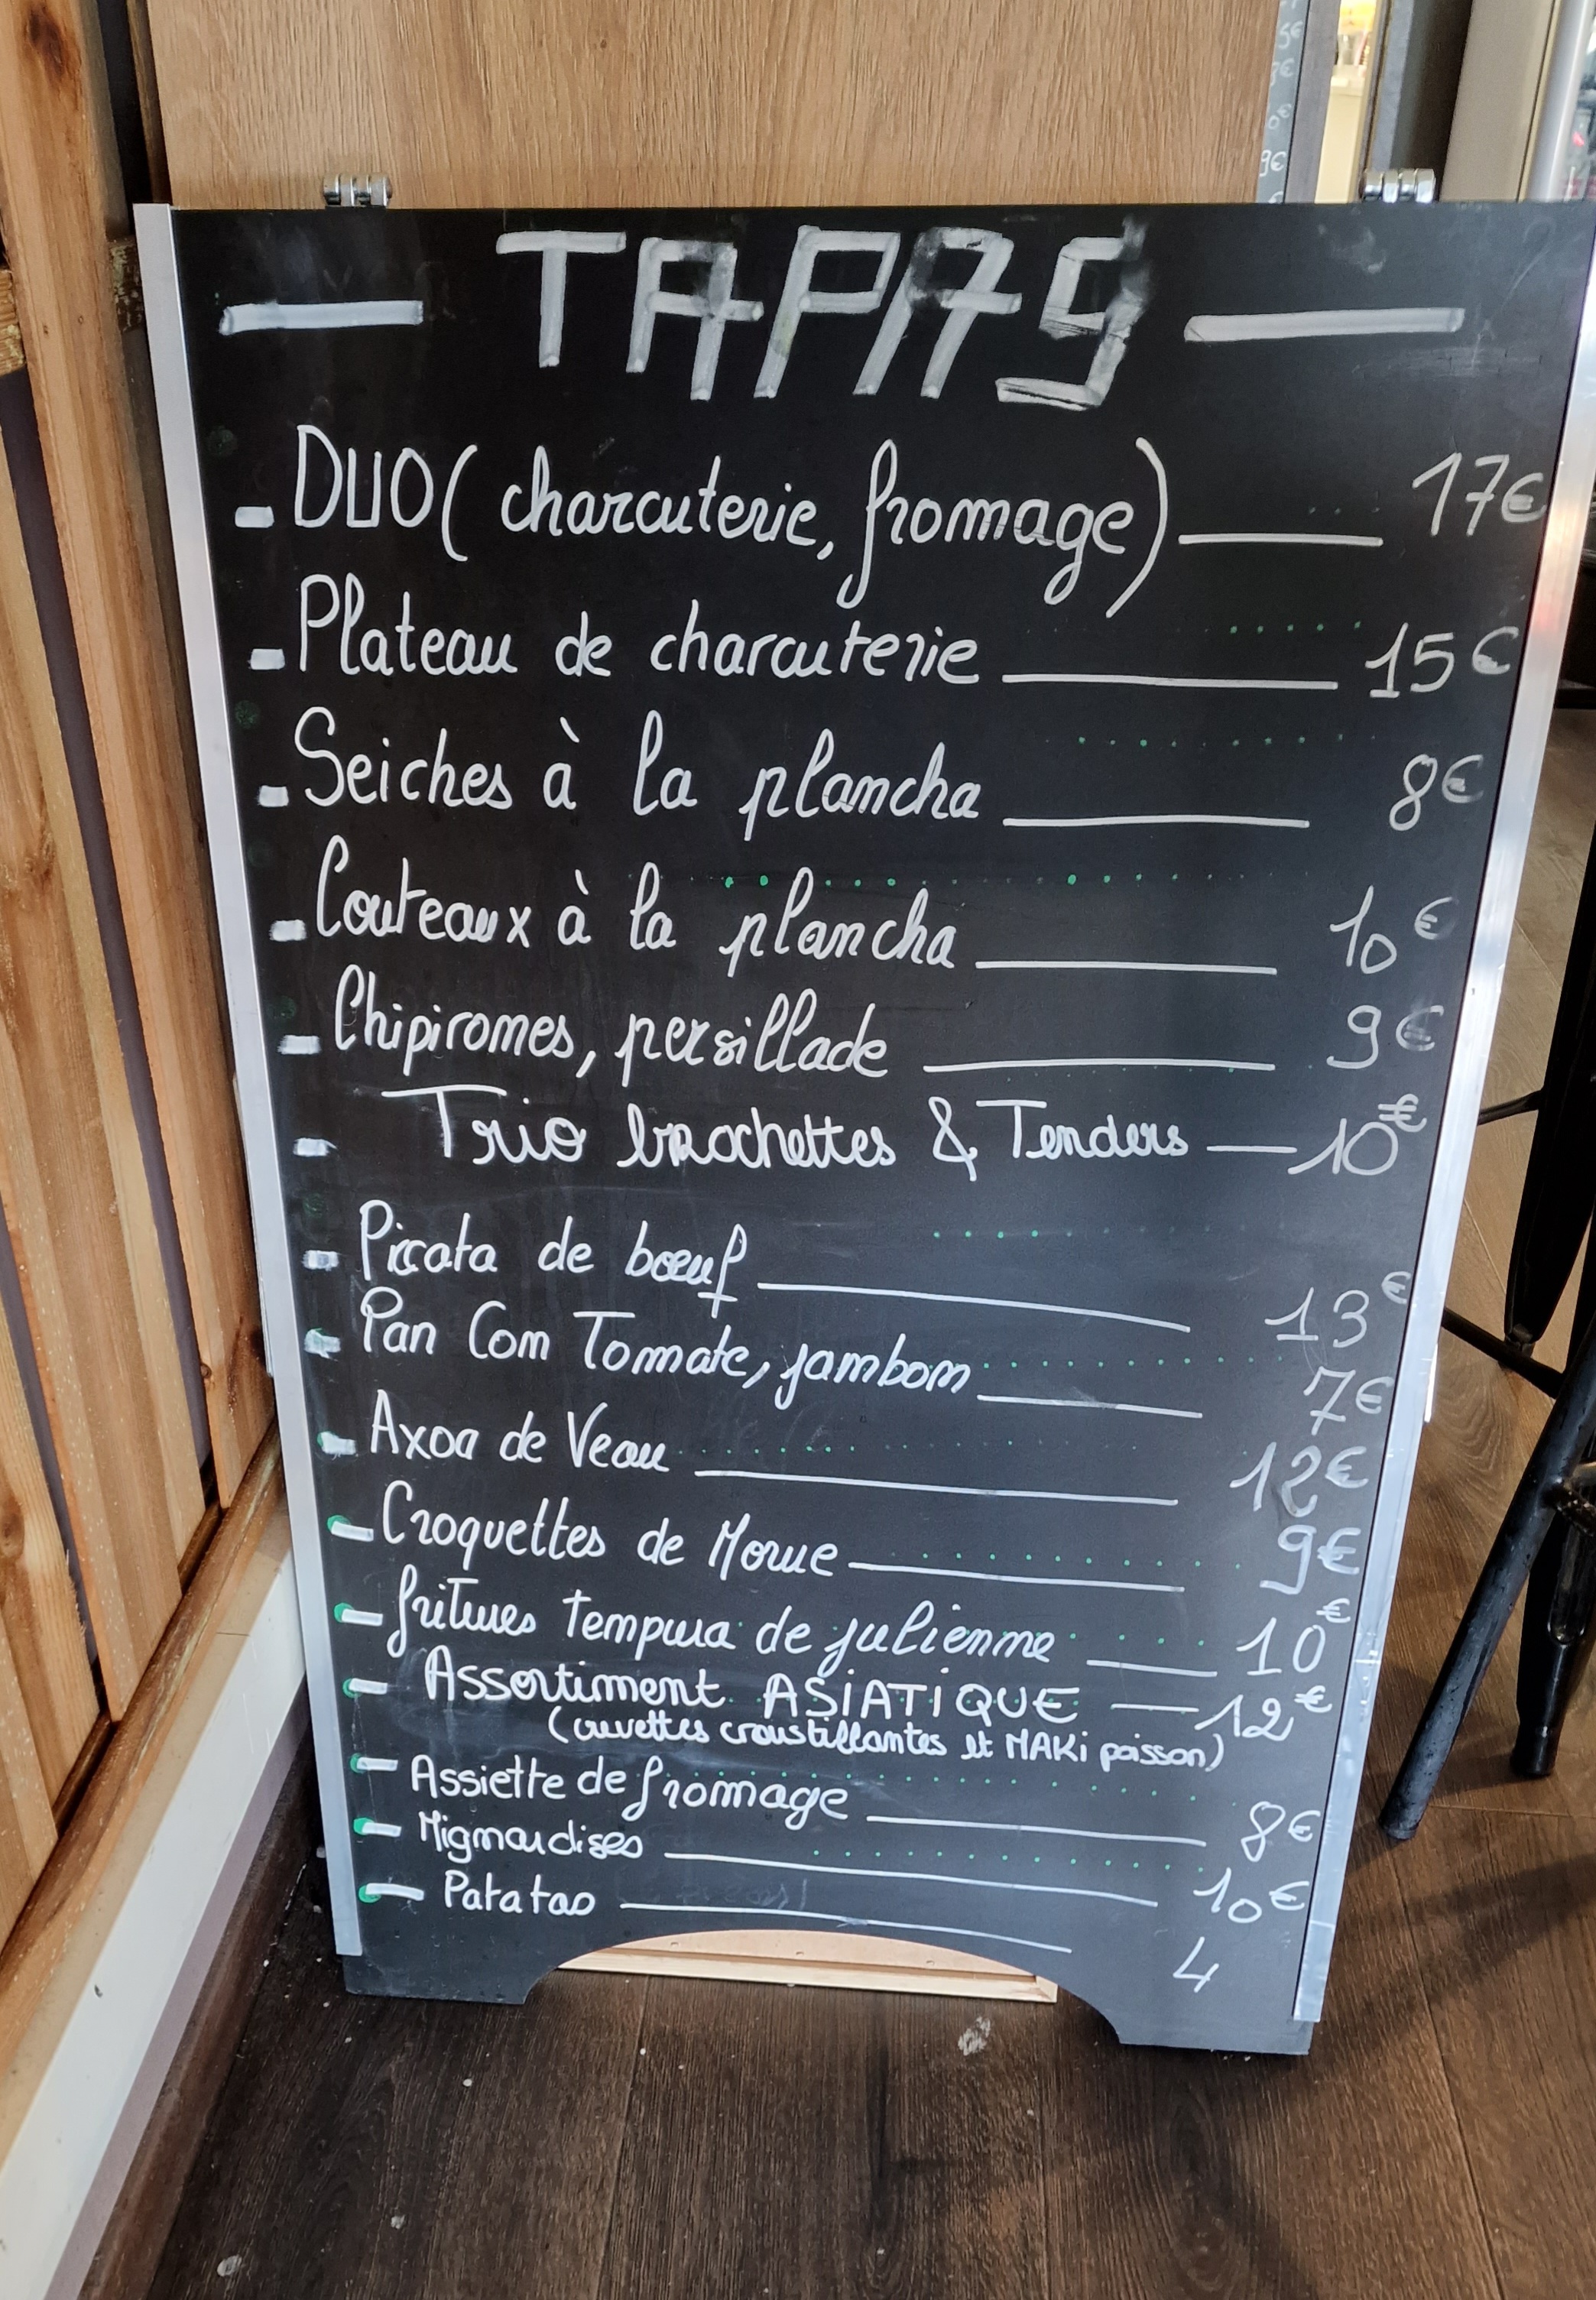 — TAPAS —
- DUO ( charcuterie, fromage) ——— 17€
- Plateau de charcuterie ——— 15€
- Seiches à la plancha ——— 8€
- Couteaux à la plancha ——— 10€
- Chipirones, persillade ——— 9€
- Trio brochettes & Tenders — 10€
- Piccata de bœuf ——— 13€
- Pan Com Tomate, jambon ——— 7€
- Axoa de Veau ——— 12€
- Croquettes de Morue ——— 9€
- fritures tempura de julienne ——— 10€
- Assortiment ASiATiQUE — 12€
(crevettes croustillantes et MAKi poisson)
- Assiette de fromage ——— 8€
- Mignardises ——— 10€
- Patatas ——— 4